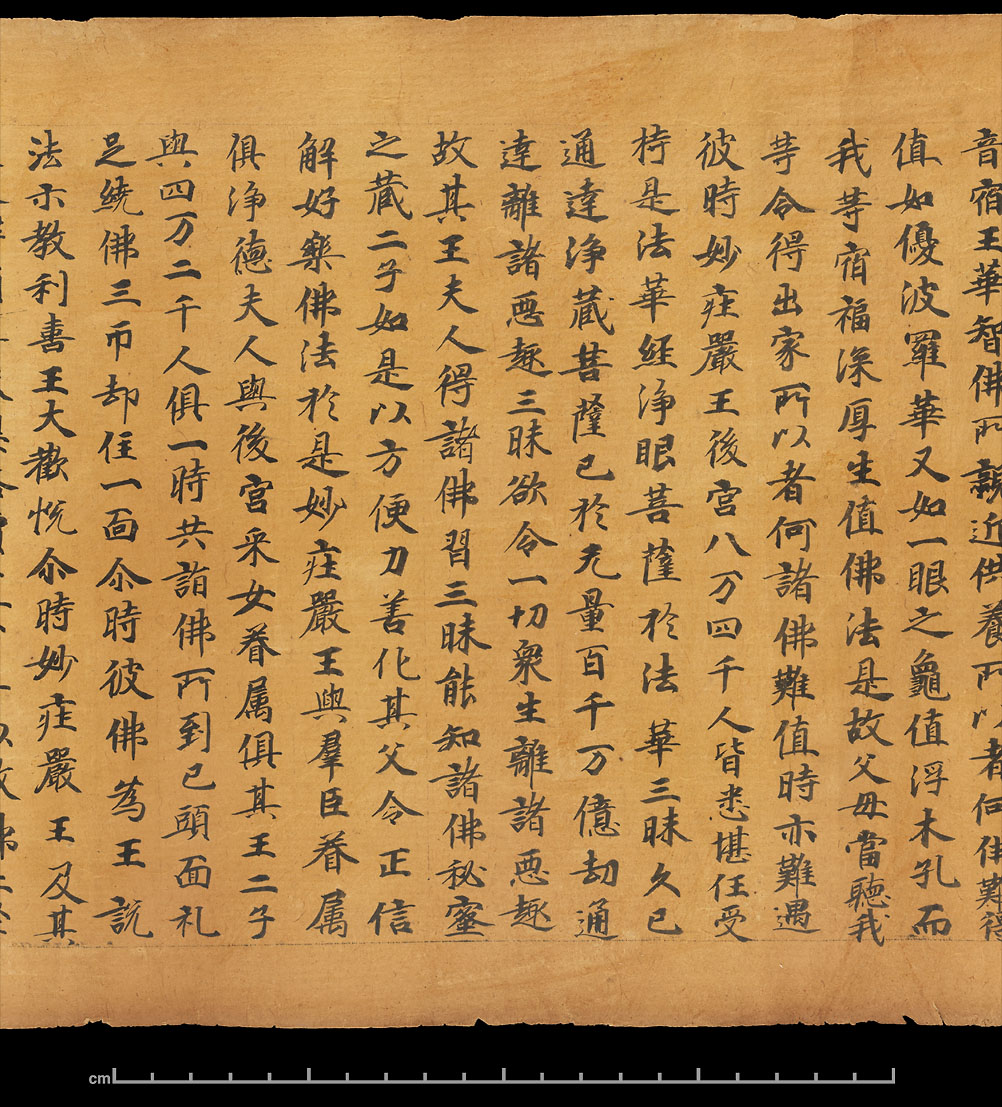 音宿王華智佛所親近供養所以者何佛難得
值如優波羅華又如一眼之龜值浮木孔而
我等宿福深厚生值佛法是故父母當聽我
等令得出家所以者何諸佛難值時亦難遇
彼時妙庄嚴王後宮八万四千人皆悉堪任受
持是法華経淨眼菩薩於法華三昧久已
通達淨藏菩薩已於无量百千万億劫通
達離諸惡趣三昧欲令一切衆生離諸惡趣
故其王夫人得諸佛習三昧能知諸佛秘蜜
之藏二子如是以方便力善化其父令正信
解好樂佛法於是妙庄嚴王與羣臣眷属
俱淨德夫人與後宮采女眷属俱其王二子
與四万二千人俱一時共詣佛所到已頭面礼
足繞佛三帀却住一面尒時彼佛為王說
法示教利喜王大歡悅尒時妙庄嚴王及其
cm